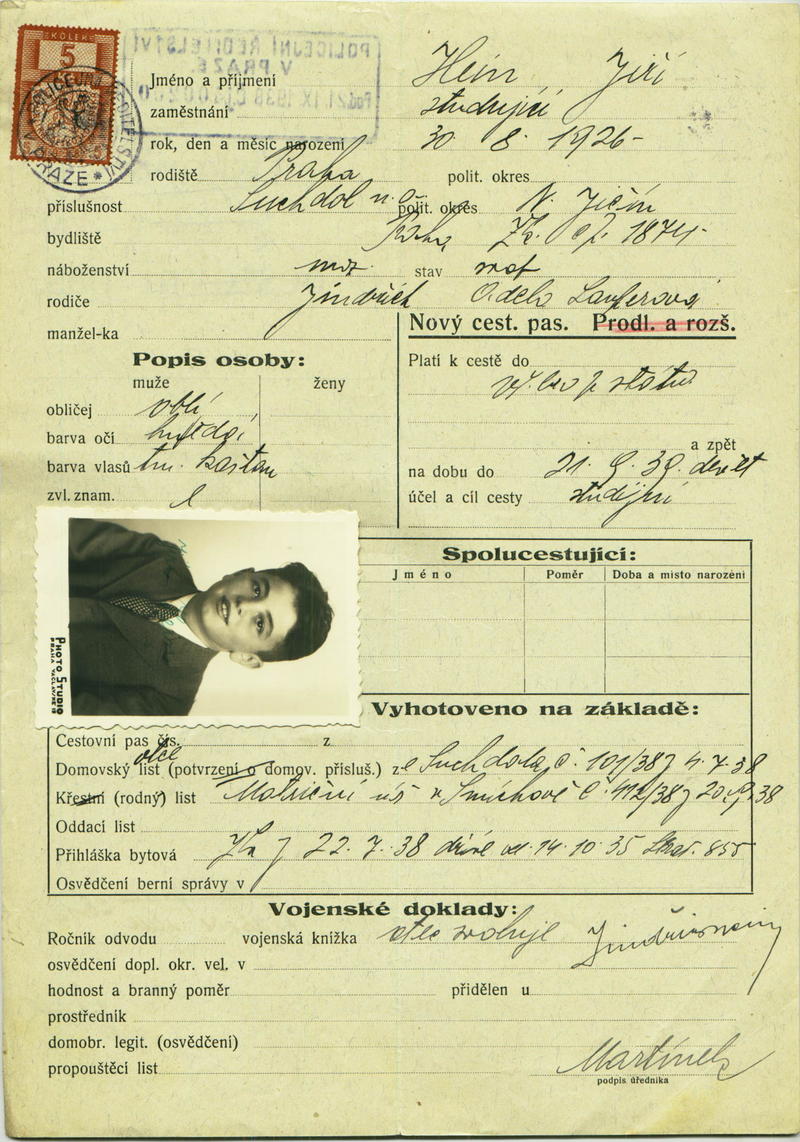 KOLEK
5
POLICEJNÍ ŘEDITELSTVÍ
V PRAZE
POLICEJNÍ ŘEDITELSTVÍ
PRAZE *
Jméno a příjmení Hein Jiří
zaměstnání studující
rok, den a měsíc narození 30 8. 1926
rodiště Praha polit. okres
příslušnost Suchdol n. O. polit. okres N. Jičín
bydliště Praha Žk. čp. 1874
náboženství moz. stav svob
rodiče Jindřich Adela Lauferová
manžel-ka
Nový cest. pas. Prodl. a rozš.
Popis osoby:
muže ženy
obličej oblí
barva očí hnědá
barva vlasů tm. kaštan
zvl. znam.
Platí k cestě do
států
a zpět
na dobu do 21. 9. 39.
účel a cíl cesty studijní
Spolucestující:
Jméno Poměr Doba a místo narození
PHOTO STUDIO
Vyhotoveno na základě:
Cestovní pas čís. z
otce
Domovský list (potvrzení o domov. přísluš.) z Suchdola č. 101/38 z 4. 7. 38
Křestní (rodný) list Matriční úř. v Smíchově č. 412/38 z 20. 9. 38
Oddací list
Přihláška bytová Žk z 22. 7. 38 dříve od 14. 10. 35 855
Osvědčení berní správy v
Vojenské doklady:
Ročník odvodu vojenská knížka otec svoluje
osvědčení dopl. okr. vel. v
hodnost a branný poměr přidělen u
prostředník
domobr. legit. (osvědčení)
propouštěcí list
Martínek
podpis úředníka